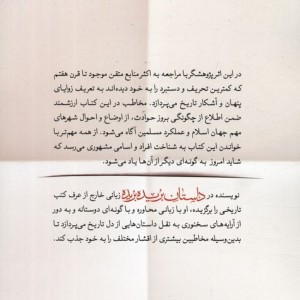 در این اثر پژوهشگر با مراجعه به اکثر منابع متقن موجود تا قرن هفتم
که کمترین تحریف و دستبرد را به خود دیده‌اند به تعریف زوایای
پنهان و آشکار تاریخ می‌پردازد. مخاطب در این کتاب ارزشمند
ضمن اطلاع از چگونگی بروز حوادث، از اوضاع و احوال شهرهای
مهم جهان اسلام و عملکرد مسلمین آگاه می‌شود. از همه مهم‌تر با
خواندن این کتاب به شناخت افراد و اسامی مشهوری می‌رسد که
شاید امروز به گونه‌ای دیگر از آن‌ها یاد می‌شود.
نویسنده در داستان بریده بریده زبانی خارج از عرف کتب
تاریخی را برگزیده، او با زبانی محاوره و با گونه‌ای دوستانه و به دور
از آرایه‌های سخنوری به نقل داستان‌هایی از دل تاریخ می‌پردازد تا
بدین‌وسیله مخاطبین بیشتری از اقشار مختلف را به خود جذب کند.